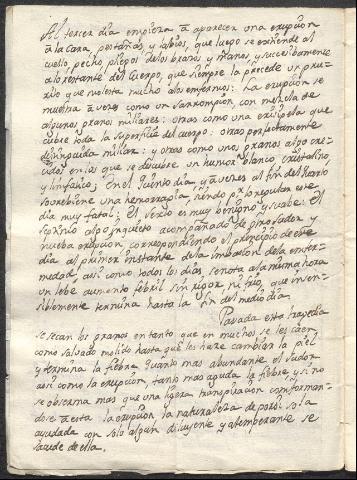 Al tercer dia empieza à aparecer una erupcion
à la Cara, pestañas, y labios, que luego se extiende al
cuello, pecho pliegos de los brazos y manos, y succesibamente
à lo restante del Cuerpo, que siempre la precede un pru-
rito que molesta mucho alos enfermos: ha erupcion se
muestra à veces como un Sarampion con mezcla de
algunos granos miliares: otras como una erisipela que
cubre toda la Superficie del cuerpo: otras perfectamente
distinguida miliar: y otras como unos granos algo cre-
cidos en los que se descubre un humor blanco, cristalino,
y linfatico; En el quinto dia y à veces al fin del quarto
sobreviene una hemorragia, siendo por lo regular este
dia muy fatal; El sexto es muy benigno y suabe: El
septimo algo inquieto acompañado de gran sudor, y
nueba erupcion, correspondiendo el principio de este
dia al primer instante de la imbasion dela enfer-
medad, asi como todos los dias se nota ala misma hora
un lebe aumento febril sin rigor ni frio, que insen-
siblemente termina hasta la fin del medio dia.
Pasada esta tragedia
se secan los granos en tanto que en muchos se les caen
como salvado molido hasta que les hace cambiar la piel
y termina la fiebre. Quanto mas abundante el sudor
asi como la erupcion, tanto mas aguda la fiebre y si no
se observa mas que una ligera transpiracion conforman-
dose à esta la erupcion la naturaleza de por si sola
ayudada con solo algun diluyente y atemperante se
sacude de ella.